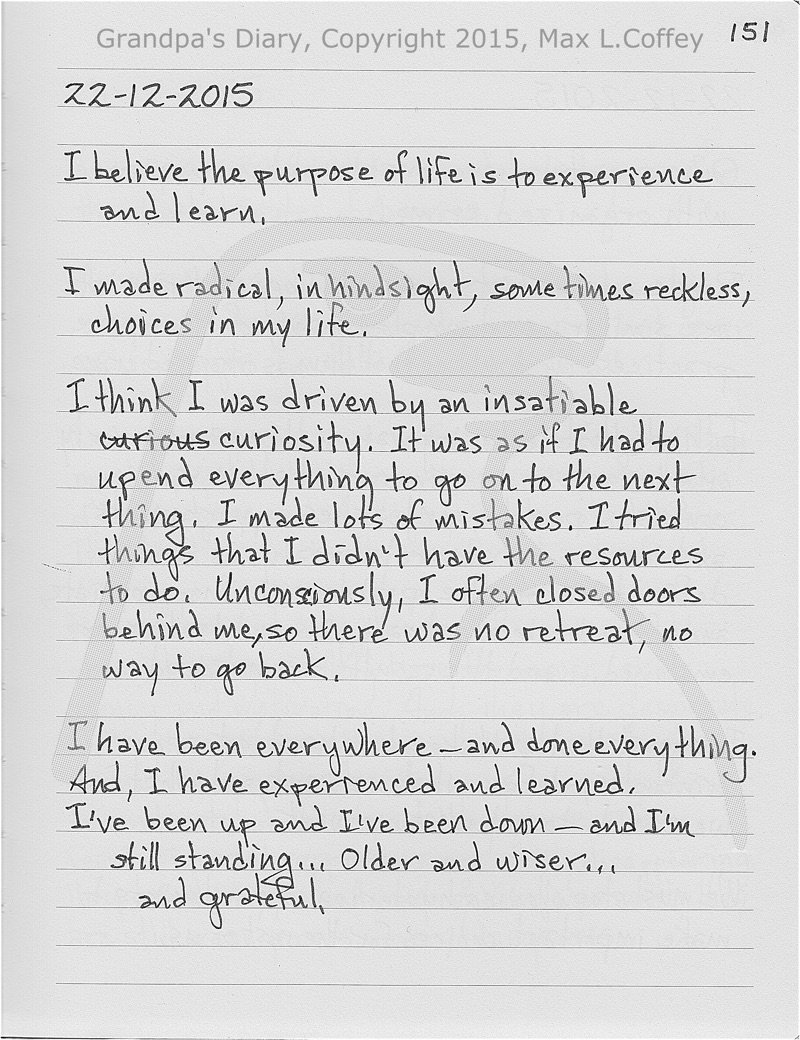 Grandpa's Diary, Copyright 2015, Max L.Coffey
151
22-12-2015
I believe the purpose of life is to experience
and learn.
I made radical, in hindsight, some times reckless,
choices in my life.
I think I was driven by an insatiable
curious curiosity. It was as if I had to
upend everything to go on to the next
thing. I made lots of mistakes. I tried
things that I didn't have the resources
to do. Unconsciously, I often closed doors
behind me, so there was no retreat, no
way to go back.
I have been everywhere – and done everything.
And, I have experienced and learned.
I've been up and I've been down – and I'm
still standing... Older and wiser...
and grateful.